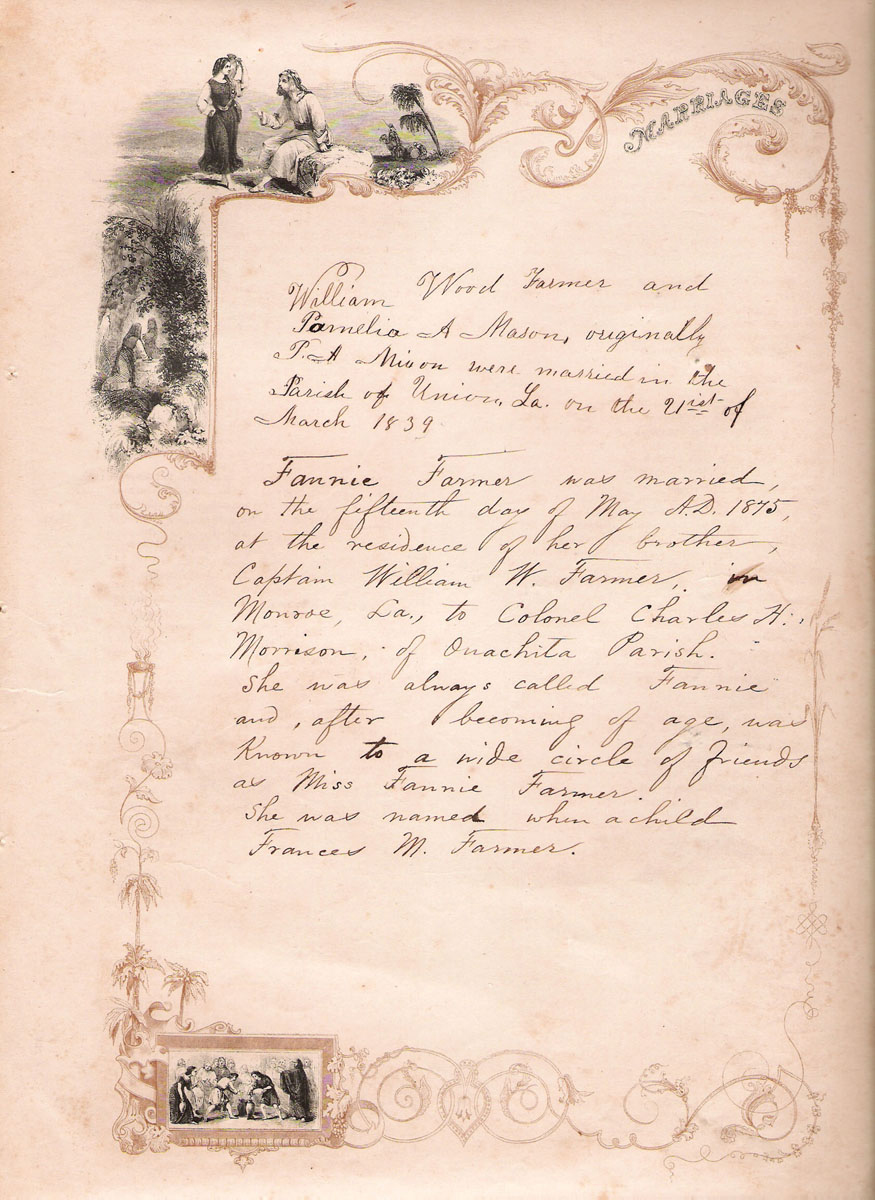 MARRIAGES
William Wood Farmer and
Pamelia A Mason, originally
P. A Mixon were married in the
Parish of Union, La. on the 21ist of
March 1839
Fannie Farmer was married,
on the fifteenth day of May A.D. 1875,
at the residence of her brother,
Captain William W. Farmer, in
Monroe, La., to Colonel Charles H.
Morrison, of Ouachita Parish.
She was always called Fannie
and, after becoming of age, was
Known to a wide circle of friends
as Miss Fannie Farmer.
She was named when a child
Frances M. Farmer.